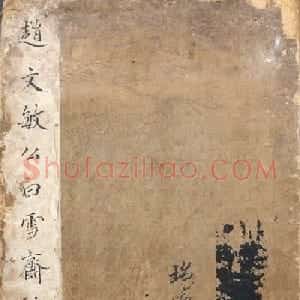 趙文敏公白雪齋
Shufaziliao.com